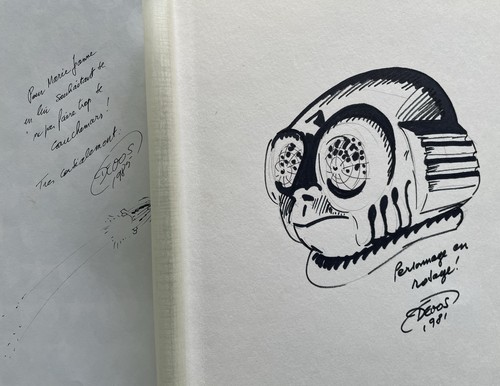 Pour Marie Jeanne
en lui souhaitant de
ne pas faire trop de
cauchemars !
Très cordialement.
1981
Personnage en
rodage !
1981